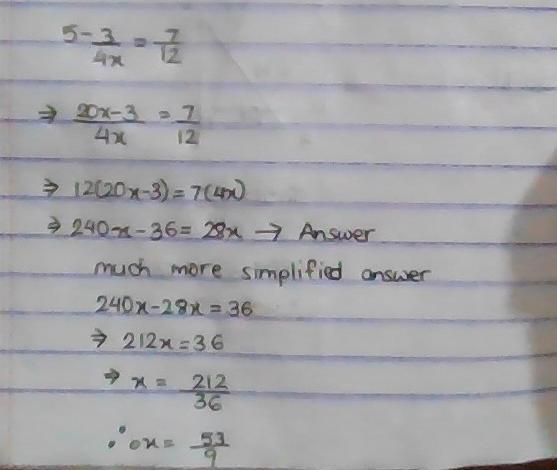 5 - 3/4x = 7/12
⇒ 20x-3/4x = 7/12
⇒ 12(20x-3) = 7(4x)
⇒ 240x - 36 = 28x → Answer
much more simplified answer
240x-28x = 36
⇒ 212x = 36
⇒ x = 212/36
∴ x = 53/9